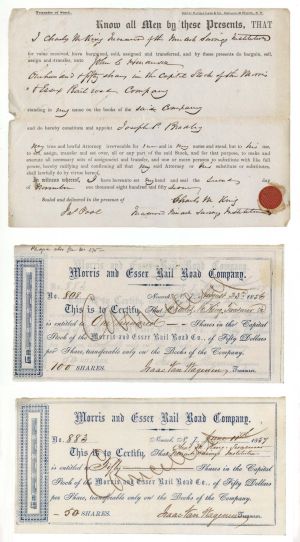 Transfer of Stock.
Know all Men by these Presents, THAT
I Charles M. King Treasurer of the Newark Savings Institution
for value received, have bargained, sold, assigned and transferred, and by these presents do bargain, sell,
assign and transfer, unto John C.
One hundred & fifty shares in the Capital Stock of the Morris
& Essex Rail road Company
standing in my name on the books of the said Company
and do hereby constitute and appoint Joseph P. Bradley
my true and lawful Attorney irrevocable for me and in my name and stead, but to his use,
to sell, assign, transfer and set over, all or any part of the said Stock, and for that purpose, to make and
execute all necessary acts of assignment and transfer, and one or more persons to substitute with like full
power, hereby ratifying and confirming all that my said Attorney or his substitute or substitutes,
shall lawfully do by virtue hereof.
In witness whereof, I have hereunto set my hand and seal the second day
of November one thousand eight hundred and fifty seven
Sealed and delivered in the presence of
Charles M King
Jas. Pool
Treasurer Newark Savings Institution
Morris and Essex Rail Road Company.
No. 808
Newark August 23d 1856
This is to Certify, That Charles M. King Treasurer
is entitled to One Hundred Shares in the Capital
Stock of the Morris and Essex Rail Road Co., of Fifty Dollars
per Share, transferable only on the Books of the Company.
100 SHARES.
Isaac Van Wagenen Treasurer.
Cancelled
Morris and Essex Rail Road Company.
No. 883
Newark N. J. 1857
This is to Certify, That Chas. M. King Treasurer
Newark Savings Institution
is entitled to Fifty Shares in the Capital
Stock of the Morris and Essex Rail Road Co., of Fifty Dollars
per Share, transferable only on the Books of the Company.
50 SHARES.
Isaac Van Wagenen Treasurer.
Cancelled